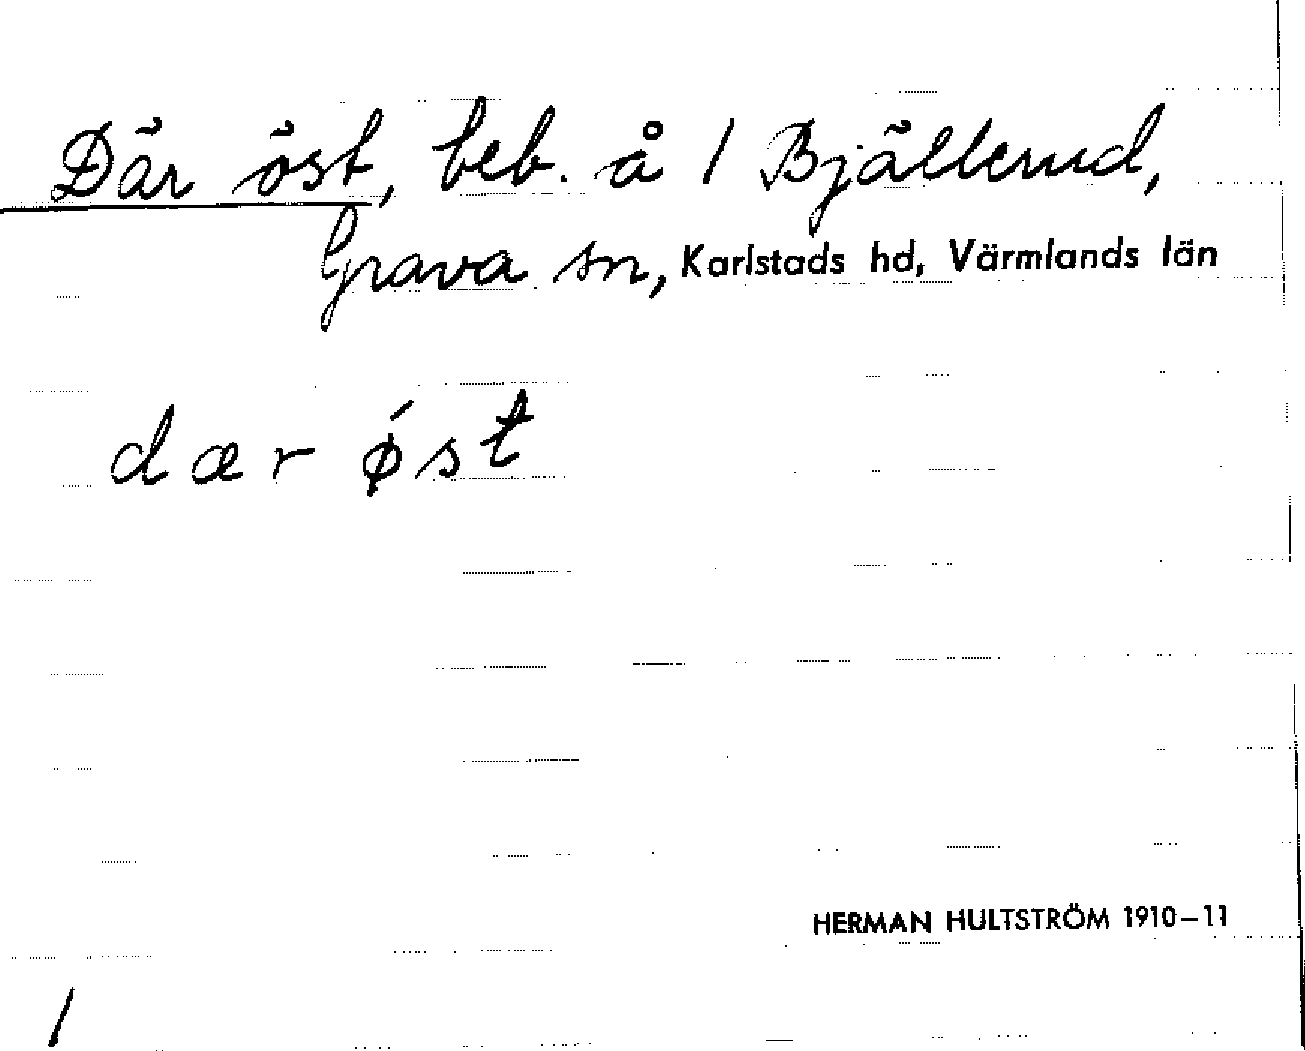 Där öst, beb. å 1 Bjällerud,
Grava sn, Karlstads hd, Värmlands län
dær ǿst
HERMAN HULTSTRÖM 1910–11
1